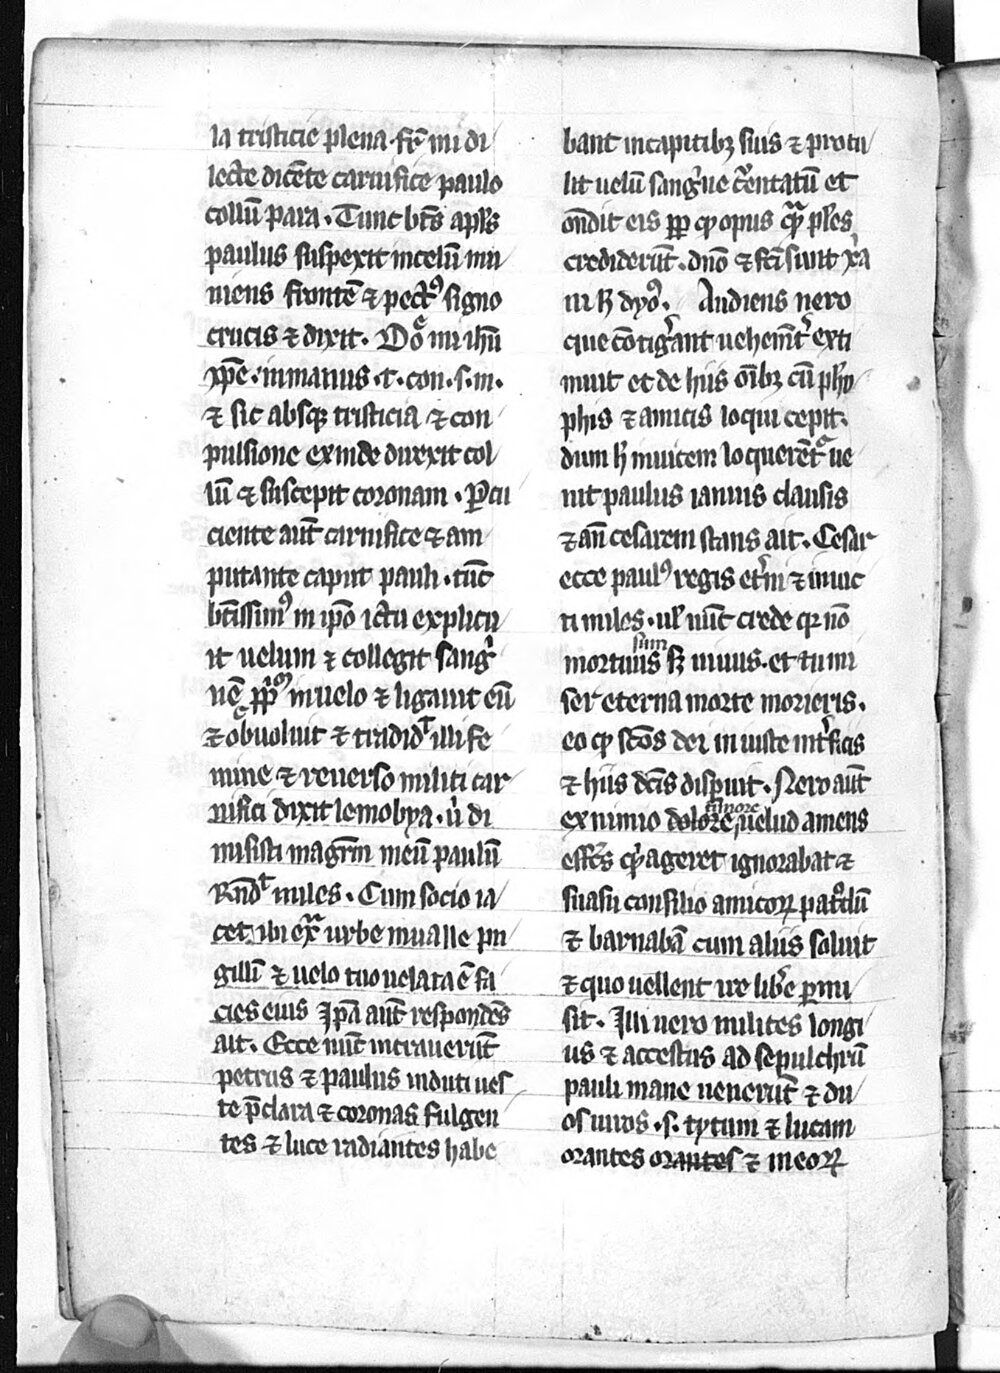 la tristicie plena. fr̄ mi di
lecte dicē̄te carnifice paulo
collū para. Tunc bt̄s apl̄s
paulus suspexit in celū mu
niens frontē ⁊ pectꝰ signo
crucis ⁊ dixit. Dō mi ihū
xp̄e. in manus .t. con. s. m.
⁊ sic absqꝫ tristicia ⁊ con
pulsione exinde direxit col
lū ⁊ suscepit coronam. P̱cu
ciente aut̄ carnifice ⁊ am
putante caput pauli. tūc
bt̄issimꝰ in ip̄o ictu explicu
it uelum ⁊ collegit sangͥ
nē pp̄ᵒ in uelo ⁊ ligauit eū
⁊ obuoluit ⁊ tradidᵗ illi fe
mine ⁊ reuerso militi car
nifici dixit lemobya. uͥ di
misisti magr̄m meū paulū
Rn̄dᵗ miles. Cum socio ia
cet ibi exᵃ urbe in ualle pu
gillū ⁊ uelo tuo uelata ē fa
cies eius Ip̄a aut̄ respondēs
ait. Ecce nūc intrauerūt
petrus ⁊ paulus induti ues
te p̄clara ⁊ coronas fulgen
tes ⁊ luce radiantes habe
bant in capitibꝫ suis ⁊ protu
lit uelū sangͥne cͬentatū et
on̄dit eis ꝓp̱ qd̄ opus qᵃ pl̄es
crediderūt. dn̄o ⁊ fc̄i sunt xͬa
ni h̄ dyoᵒ. Audiens nero
que cōtigͬant uehemt̄ͬ exti
muit et de hiis oībꝫ cū phy
phis ⁊ amicis loqui cepit.
dum h̄ inuicem loquerētᵃ ue
nit paulus ianuis clausis
⁊ an̄ cesarem stans ait. Cesar
ecce paulꝰ regis etͬni ⁊ inuic
ti miles. ul̄ nūc crede qꝛ nō
sum
mortuus sꝫ uiuus. et tu mi
ser eterna morte morieris.
eo qd̄ sc̄os dei in iuste intͬficis
⁊ hiis dc̄is disp̱uit. Nero aut̄
timore
ex nimio dolore, uelud amens
effc̄s qͥd ageret ignorabat ⁊
suasu consilio amicoꝝ patͦclū
⁊ barnabā cum aliis soluit
⁊ quo uellent ire libͬe p̱mi
sit. Illi uero milites longi
us ⁊ accestus ad sepulchrū
pauli mane uenerūt ⁊ du
os uiros .s. tytum ⁊ lucam
orantes orantes ⁊ in eoꝝ